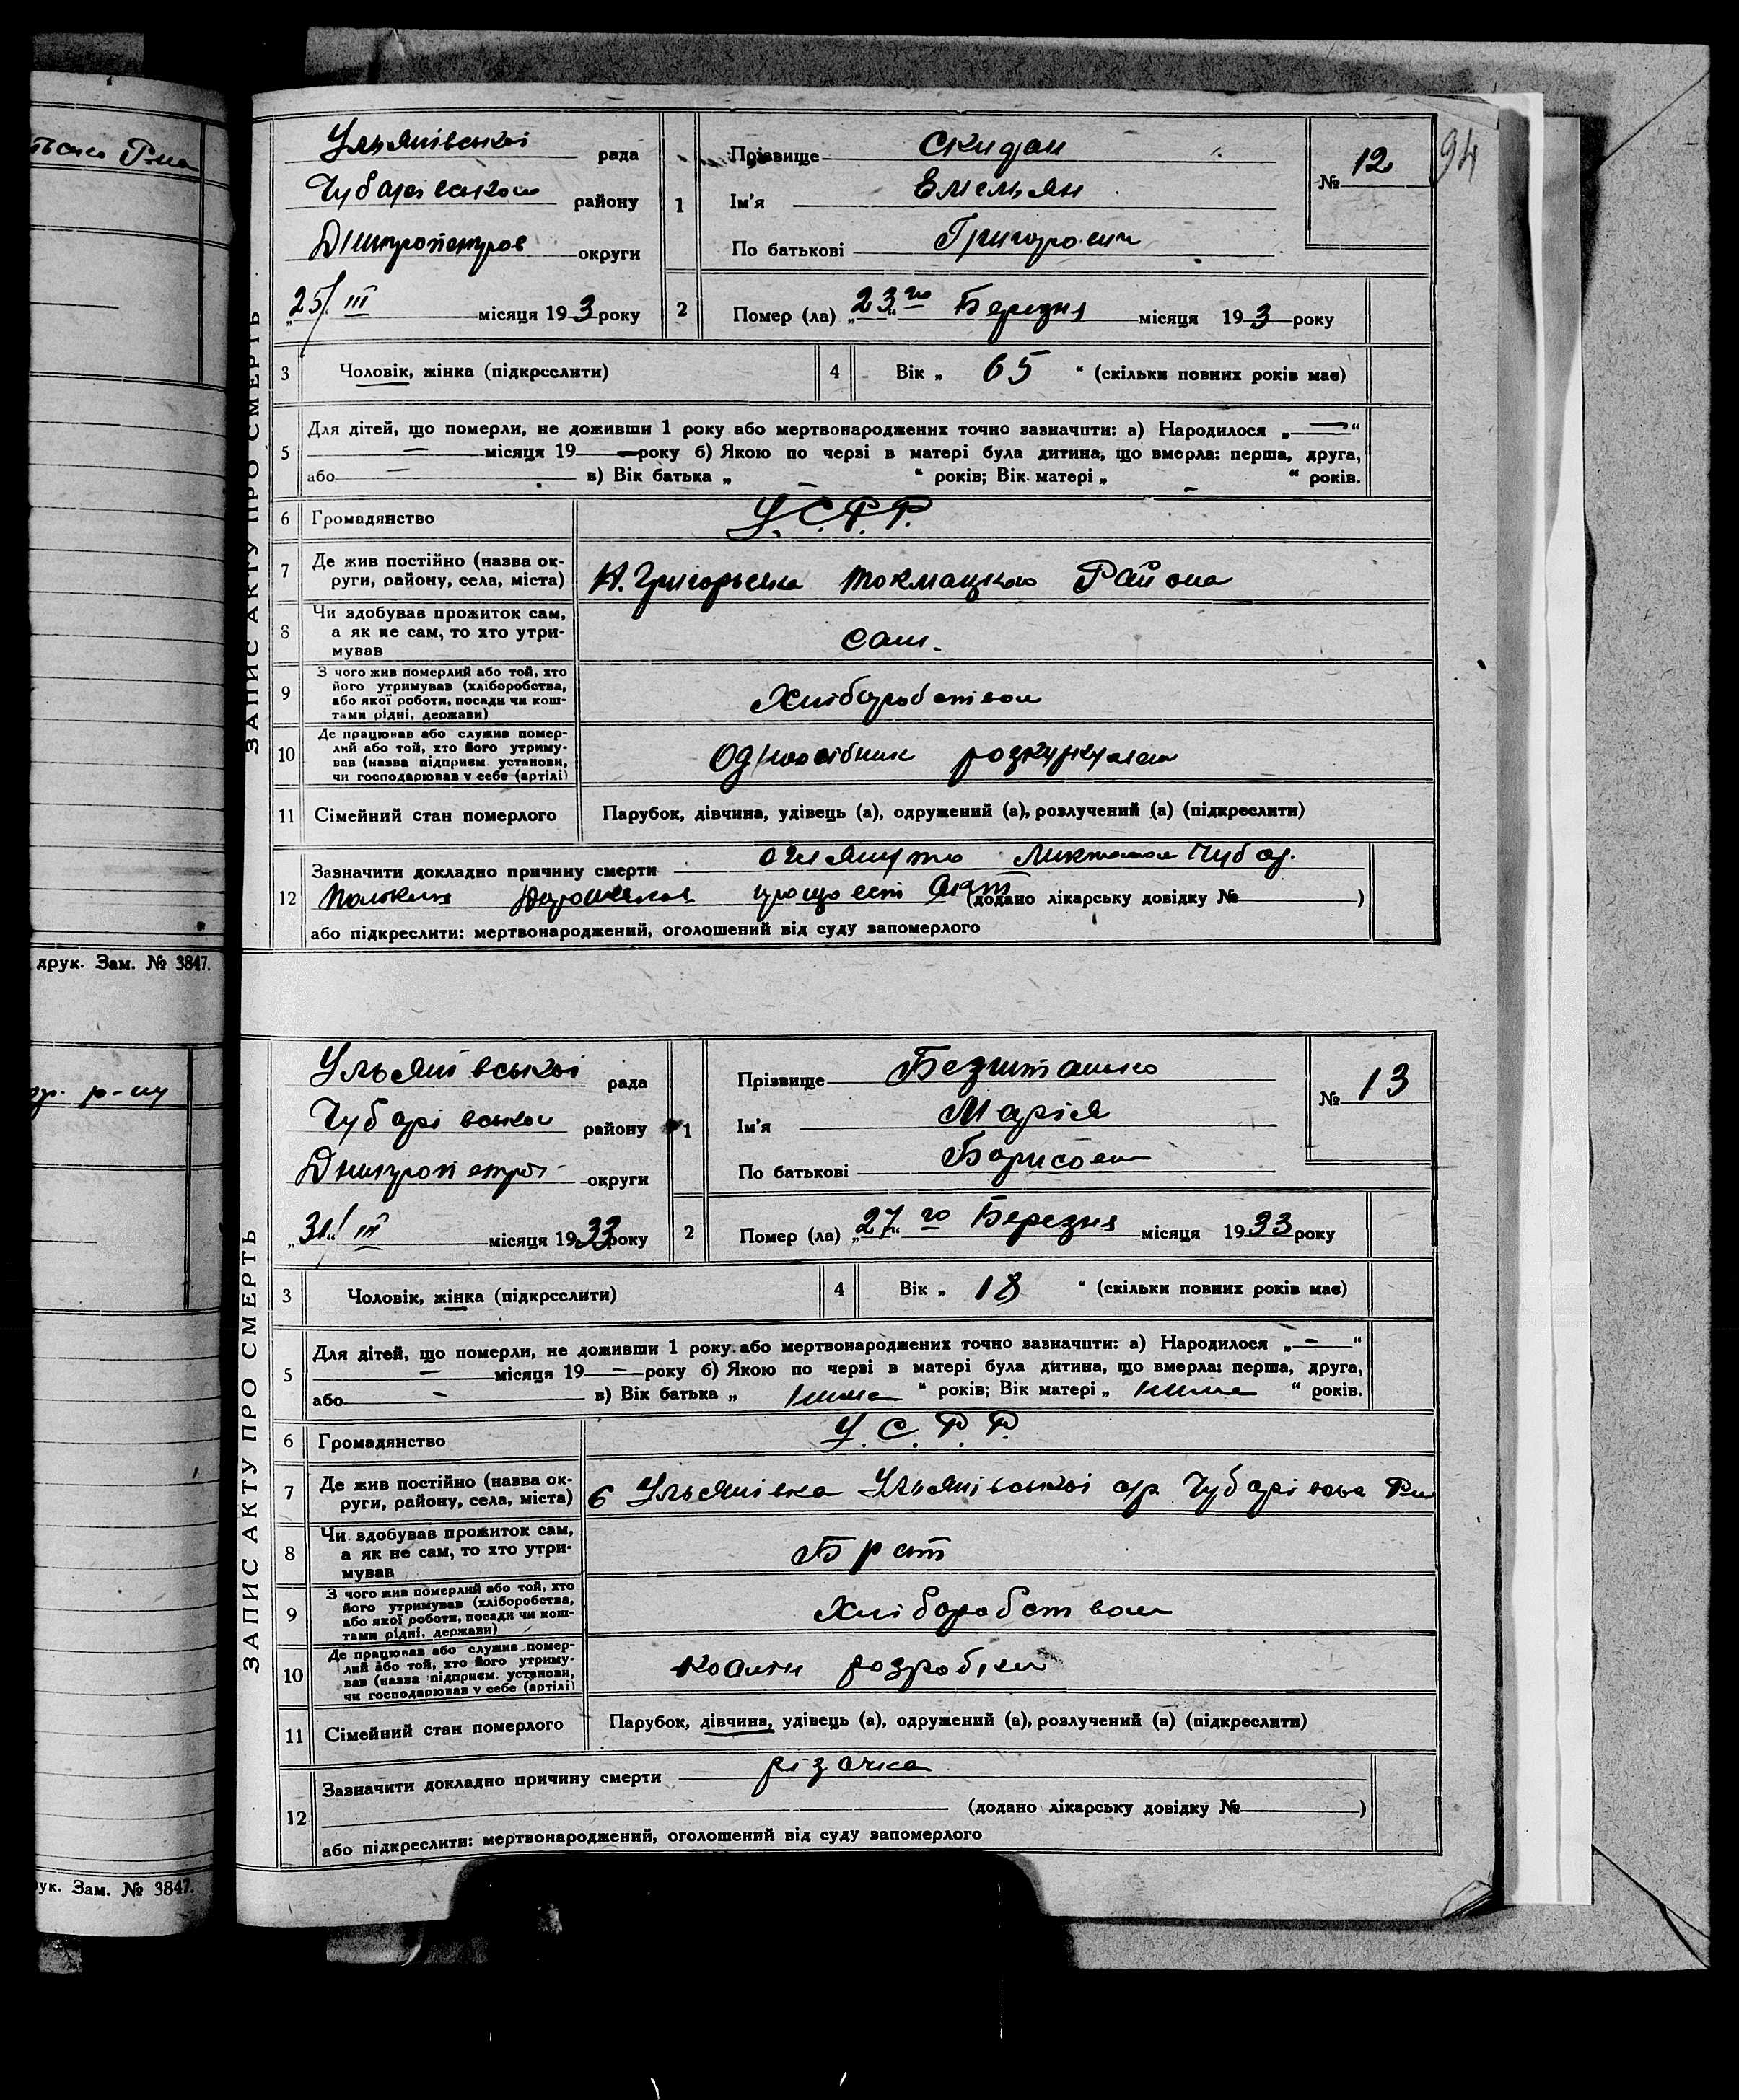 94
друк. Зам. № 3847.
р-ну
друк. Зам. № 3847.
ЗАПИС АКТУ ПРО СМЕРТЬ
Ульянівської рада
Чубарівськом району
Дніпропетров округи
„25/III місяця 193 3 року
1
Прізвище Скидан
Ім'я Емельян
По батькові Григорович
№ 12
2 Помер (ла) „23“ го Березня місяця 193 3 року
3 Чоловік, жінка (підкреслити)
4 Вік „ 65 “ (скільки повних років має)
5 Для дітей, що померли, не доживши 1 року або мертвонароджених точно зазначити: а) Народилося „ — “
— місяця 19 — року б) Якою по черзі в матері була дитина, що вмерла: перша, друга,
або — в) Вік батька „ — “ років; Вік матері „ — “ років.
6 Громадянство У.С.Р.Р.
7 Де жив постійно (назва округи, району, села, міста) Н. Григорьевка Токмацком Района
8 Чи здобував прожиток сам, а як не сам, то хто утримував сам.
9 З чого жив померлий або той, хто його утримував (хліборобства, або якої роботи, посади чи коштами рідні, держави) Хліборобством
10 Де працював або служив померлий або той, хто його утримував (назва підприєм. установи, чи господарював у себе (артілі) Одноосібник
11 Сімейний стан померлого Парубок, дівчина, удівець (а), одружений (а), розлучений (а) (підкреслити)
12 Зазначити докладно причину смерти Чубар.
Акт (додано лікарську довідку № )
або підкреслити: мертвонароджений, оголошений від суду запомерлого
ЗАПИС АКТУ ПРО СМЕРТЬ
Ульянівської рада
Чубарівськом району
Дніпропетров округи
„31“/III місяця 1933 року
1
Прізвище Безшташко
Ім'я Марія
По батькові Борисовн
№ 13
2 Помер (ла) „27“ го Березня місяця 1933 року
3 Чоловік, жінка (підкреслити)
4 Вік „ 18 “ (скільки повних років має)
5 Для дітей, що померли, не доживши 1 року або мертвонароджених точно зазначити: а) Народилося „ - “
— місяця 19 — року б) Якою по черзі в матері була дитина, що вмерла: перша, друга,
або - в) Вік батька „ нима “ років; Вік матері „ нима “ років.
6 Громадянство У.С.Р.Р.
7 Де жив постійно (назва округи, району, села, міста) с Ульянівка Ульянівської с/р. Чубарівсько Р-н
8 Чи здобував прожиток сам, а як не сам, то хто утримував Брат
9 З чого жив померлий або той, хто його утримував (хліборобства, або якої роботи, посади чи коштами рідні, держави) Хліборобством
10 Де працював або служив померлий або той, хто його утримував (назва підприєм. установи, чи господарював у себе (артілі) розробки
11 Сімейний стан померлого Парубок, дівчина, удівець (а), одружений (а), розлучений (а) (підкреслити)
12 Зазначити докладно причину смерти різачка
(додано лікарську довідку № )
або підкреслити: мертвонароджений, оголошений від суду запомерлого